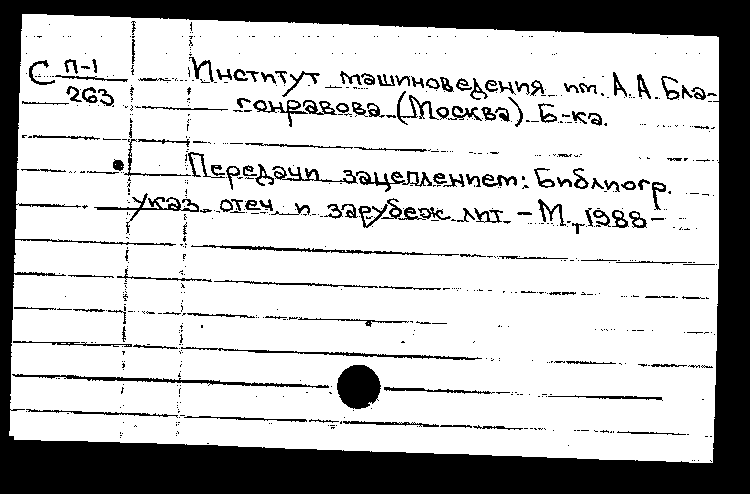 С П-1
263
Институт машиноведения им. А.А. Бла-
гонравова (Москва). Б-ка.
Передачи зацеплением: Библиогр.
указ. отеч. и зарубеж. лит. – М., 1988 –